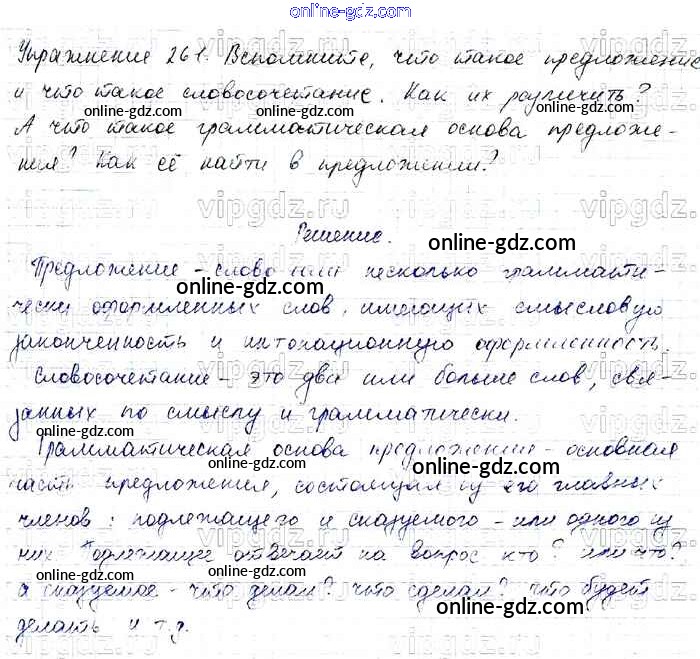 online-gdz.com
Упражнение 261. Вспомните, что такое предложение
и что такое словосочетание. Как их различить?
online-gdz.com online-gdz.com
А что такое грамматическая основа предложе-
ния? Как её найти в предложении?
online-gdz.com online-gdz.com
vipgdz.ru vipgdz.ru vipgdz.ru
Решение.
online-gdz.com
Предложение – слово или несколько граммати-
online-gdz.com
чески оформленных слов, имеющих смысловую
законченность и интонационную оформленность.
Словосочетание – это два или больше слов, свя-
online-gdz.com
занных по смыслу и грамматически.
online-gdz.com
Грамматическая основа предложения – основная
online-gdz.com
часть предложения, состоящая из его главных
online-gdz.com
членов: подлежащего и сказуемого – или одного из
них. Подлежащее отвечает на вопрос кто? или что?
online-gdz.com
а сказуемое – что делал? что сделал? что будет
online-gdz.com
делать и т.д.
online-gdz.com